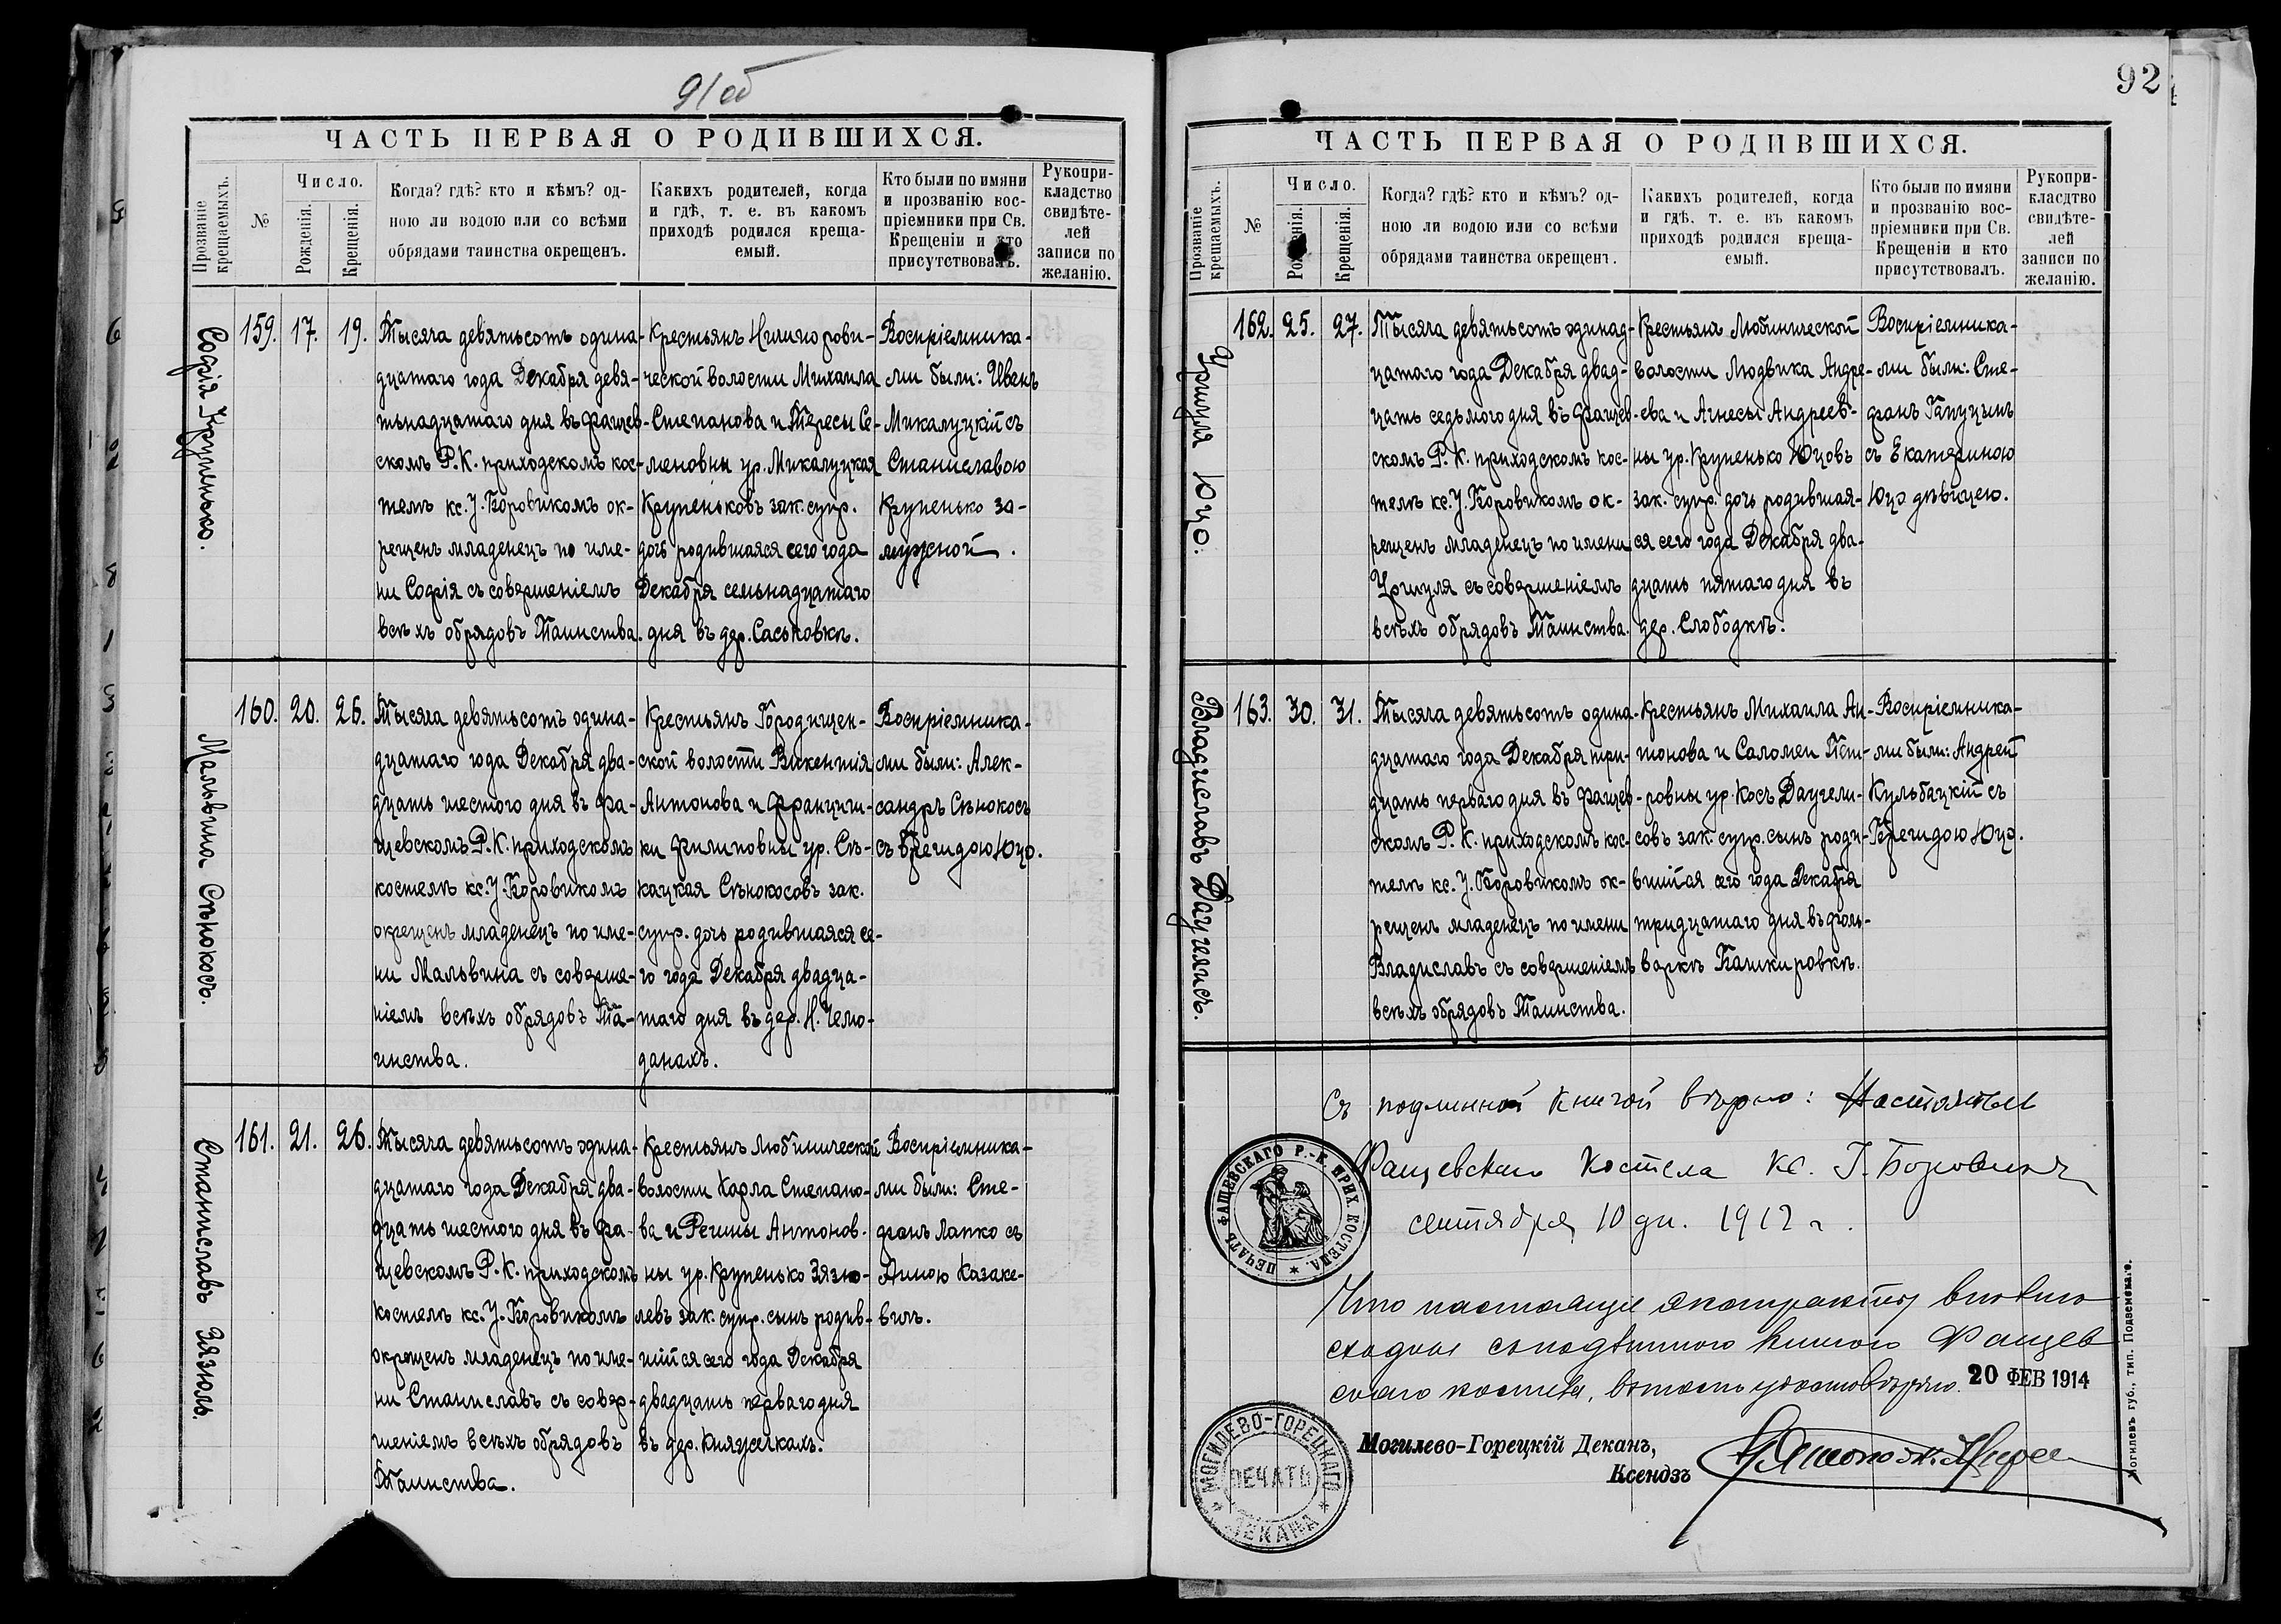 91об
ЧАСТЬ ПЕРВАЯ О РОДИВШИХСЯ.
Прозваніе крещаемыхъ.
№
Число.
Рожденія.
Крещенія.
Когда? гдѣ? кто и кѣмъ? од-
ною ли водою или со всѣми
обрядами таинства окрещенъ.
Какихъ родителей, когда
и гдѣ, т. е. въ какомъ
приходѣ родился креща-
емый.
Кто были по имяни
и прозванію вос-
пріемники при Св.
Крещеніи и кто
присутствовалъ.
Рукопри-
кладство
свидѣте-
лей
записи по
желанію.
Софія Крупенько.
159. 17. 19.
Тысяча девятьсотъ одина-
дцатаго года Декабря девя-
тьнадцатаго дня въ Фащев-
скомъ Р. К. приходскомъ кос-
телѣ кс. І. Боровикомъ ок-
рещенъ младенецъ по име-
ни Софія съ совершеніемъ
всѣхъ обрядовъ Таинства.
Крестьянъ Ничипорови-
ческой волости Михаила
Степанова и Тересы Се-
меновны ур. Микалуцкая
Крупеньковъ зак. супр.
дочь родившаяся сего года
Декабря семьнадцатаго
дня въ дер. Саськовкѣ.
Воспріемника-
ми были: Иванъ
Микалуцкій съ
Станиславою
Крупенько за-
мужной.
Мальвина Сѣнокосъ.
160. 20. 26.
Тысяча девятьсотъ одина-
дцатаго года Декабря два-
дцать шестого дня въ Фа-
щевскомъ Р. К. приходскомъ
костелѣ кс. І. Боровикомъ
окрещенъ младенецъ по име-
ни Мальвина съ соверше-
ніемъ всѣхъ обрядовъ Та-
инства.
Крестьянъ Городищен-
ской волости Викентія
Антонова и Францишк-
ки Филиповны ур. Съ-
кацкая Сѣнокосовъ зак.
супр. дочь родившаяся се-
го года Декабря двадца-
таго дня въ дер. Н. Чемо-
данахъ.
Воспріемника-
ми были: Алек-
сандръ Сѣнокосъ
съ Бригидою Юцо.
Станиславъ Зязюль.
161. 21. 26.
Тысяча девятьсотъ одина-
дцатаго года Декабря два-
дцать шестого дня въ Фа-
щевскомъ Р. К. приходскомъ
костелѣ кс. І. Боровикомъ
окрещенъ младенецъ по име-
ни Станиславъ съ совер-
шеніемъ всѣхъ обрядовъ
Таинства.
Крестьянъ Любинической
волости Карла Степано-
ва и Регины Антонов-
ны ур. Крупенько Зязю-
левъ зак. супр. сынъ родив-
шійся сего года Декабря
двадцать перваго дня
въ дер. Княжицахъ.
Воспріемника-
ми были: Сте-
фанъ Лапко съ
Анною Казаке-
вичъ.
92
ЧАСТЬ ПЕРВАЯ О РОДИВШИХСЯ.
Прозваніе крещаемыхъ.
№
Число.
Рожденія.
Крещенія.
Когда? гдѣ? кто и кѣмъ? од-
ною ли водою или со всѣми
обрядами таинства окрещенъ.
Какихъ родителей, когда
и гдѣ, т. е. въ какомъ
приходѣ родился креща-
емый.
Кто были по имяни
и прозванію вос-
пріемники при Св.
Крещеніи и кто
присутствовалъ.
Рукопри-
класдтво
свидѣте-
лей
записи по
желанію.
Уршуля Юцо.
162. 25. 27.
Тысяча девятьсотъ одинад-
цатаго года Декабря двад-
цать седьмого дня въ Фащев-
скомъ Р. К. приходскомъ кос-
телѣ кс. І. Боровикомъ ок-
рещенъ младенецъ по имени
Уршуля съ совершеніемъ
всѣхъ обрядовъ Таинства.
Крестьянъ Любинической
волости Людвика Андре-
ева и Агнесы Андреев-
ны ур. Крупенько Юцовъ
зак. супр. дочь родившая-
ся сего года Декабря два-
дцать пятаго дня въ
дер. Слободкѣ.
Воспріемника-
ми были: Сте-
фанъ Гапуцынъ
съ Екатериною
Юцо дѣвицею.
Владиславъ Даугелисъ.
163. 30. 31.
Тысяча девятьсотъ одина-
дцатаго года Декабря три-
дцать перваго дня въ Фащев-
скомъ Р. К. приходскомъ кос-
телѣ кс. І. Боровикомъ ок-
рещенъ младенецъ по имени
Владиславъ съ совершеніемъ
всѣхъ обрядовъ Таинства.
Крестьянъ Михаила Ан-
тонова и Саломеи Пет-
ровны ур. Косъ Даугели-
совъ зак. супр. сынъ роди-
вшійся сего года Декабря
тридцатаго дня въ фоль-
варкѣ Кашкировкѣ.
Воспріемника-
ми были: Андрей
Кульбацкій съ
Бригидою Юцо.
Съ подлинной книгой вѣрно: Настоятель
Фащевскаго Костела кс. І. Боровикъ
сентября 10 дн. 1912 г.
ПЕЧАТЬ ФАЩЕВСКАГО Р.-К. ПРИХ. КОСТЕЛА.
Что настоящіе экстракты вполнѣ
сходны съ подлинною книгою Фащев
скаго костела, въ томъ удостовѣряю.
20 ФЕВ 1914
Могилево-Горецкій Деканъ,
Ксендзъ
МОГИЛЕВО-ГОРЕЦКАГО ДЕКАНА
ПЕЧАТЬ
Могилевъ губ., тип. Подземскаго.